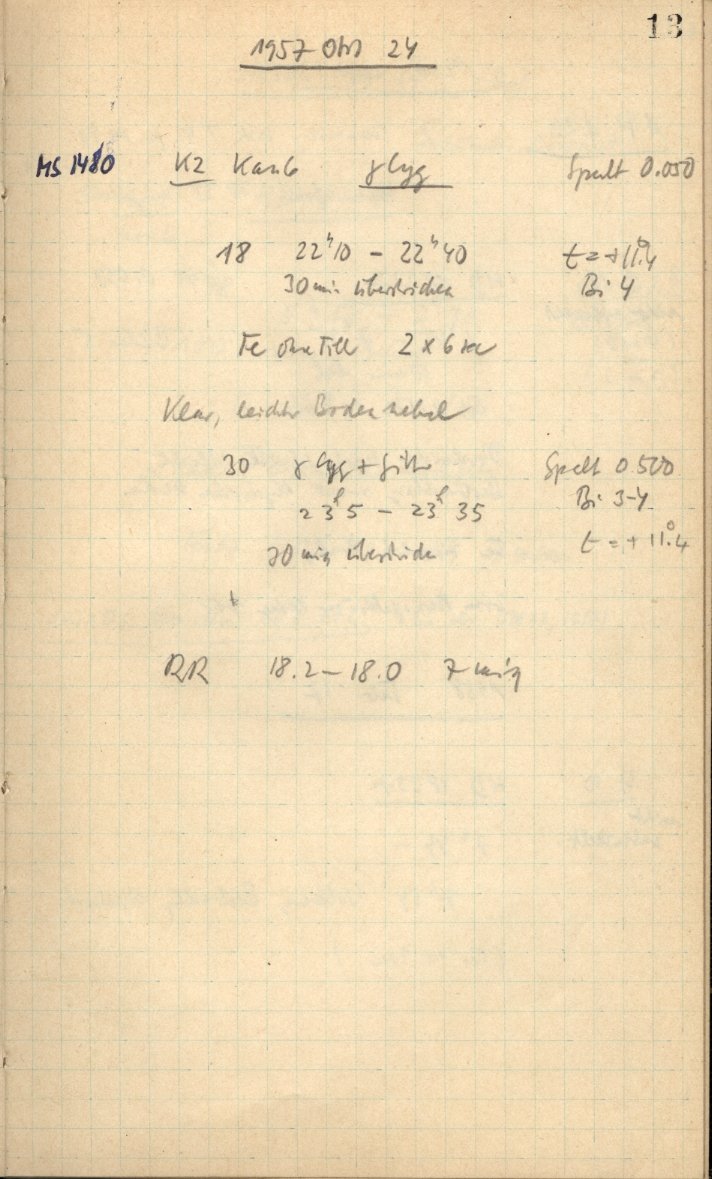 13
1957 Okt 24
MS 1480 K2 Kan 6 γ Cyg Spalt 0.050
18 22h10 - 22h40 t = +11°.4
30 min überstrichen Bi 4
Fe ohne Filt 2 x 6 sec
Klar, leichter Bodennebel
30 γ Cyg + Filter Spalt 0.500
23h5 - 23h35 Bi 3-4
30 min überstrichen t = + 11°.4
RR 18.2 - 18.0 7 min